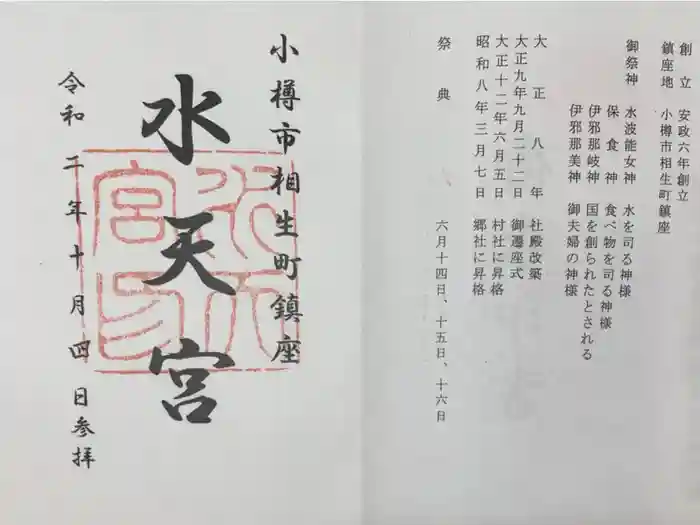 創立 安政六年創立
鎮座地 小樽市相生町鎮座
御祭神 水波能女神 水を司る神様
保食神 食べ物を司る神様
伊邪那岐神 国を創られたとされる
伊邪那美神 御夫婦の神様
大正八年 社殿改築
大正九年九月二十二日 御遷座式
大正十二年六月五日 村社に昇格
昭和八年三月七日 郷社に昇格
祭典 六月十四日、十五日、十六日
小樽市相生町鎮座
水天宮
水天宮印
令和二年十月四日参拝